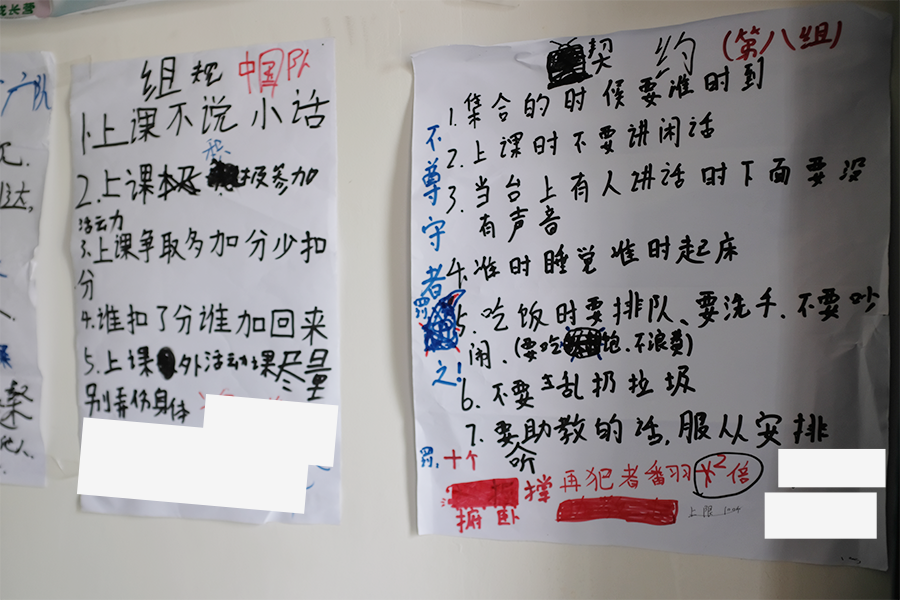 成长营
广队
组规 中国队
1.上课不说小话
积
2.上课极参加
活动力
3.上课争取多加分少扣
分
4.谁扣了分谁加回来
5.上课外活动课尽量
别弄伤身体
契约(第八组)
1.集合的时候要准时到
2.上课时不要讲闲话
3.当台上有人讲话时下面要没
有声音
4.准时睡觉准时起床
5.吃饭时要排队、要洗手.不要吵
闹.(要吃饱.不浪费)
6.不要乱扔垃圾
7.要助教的话,服从安排
听
不尊守者
罚之!
罚.十个
俯卧撑
再犯者番羽x2倍
上限